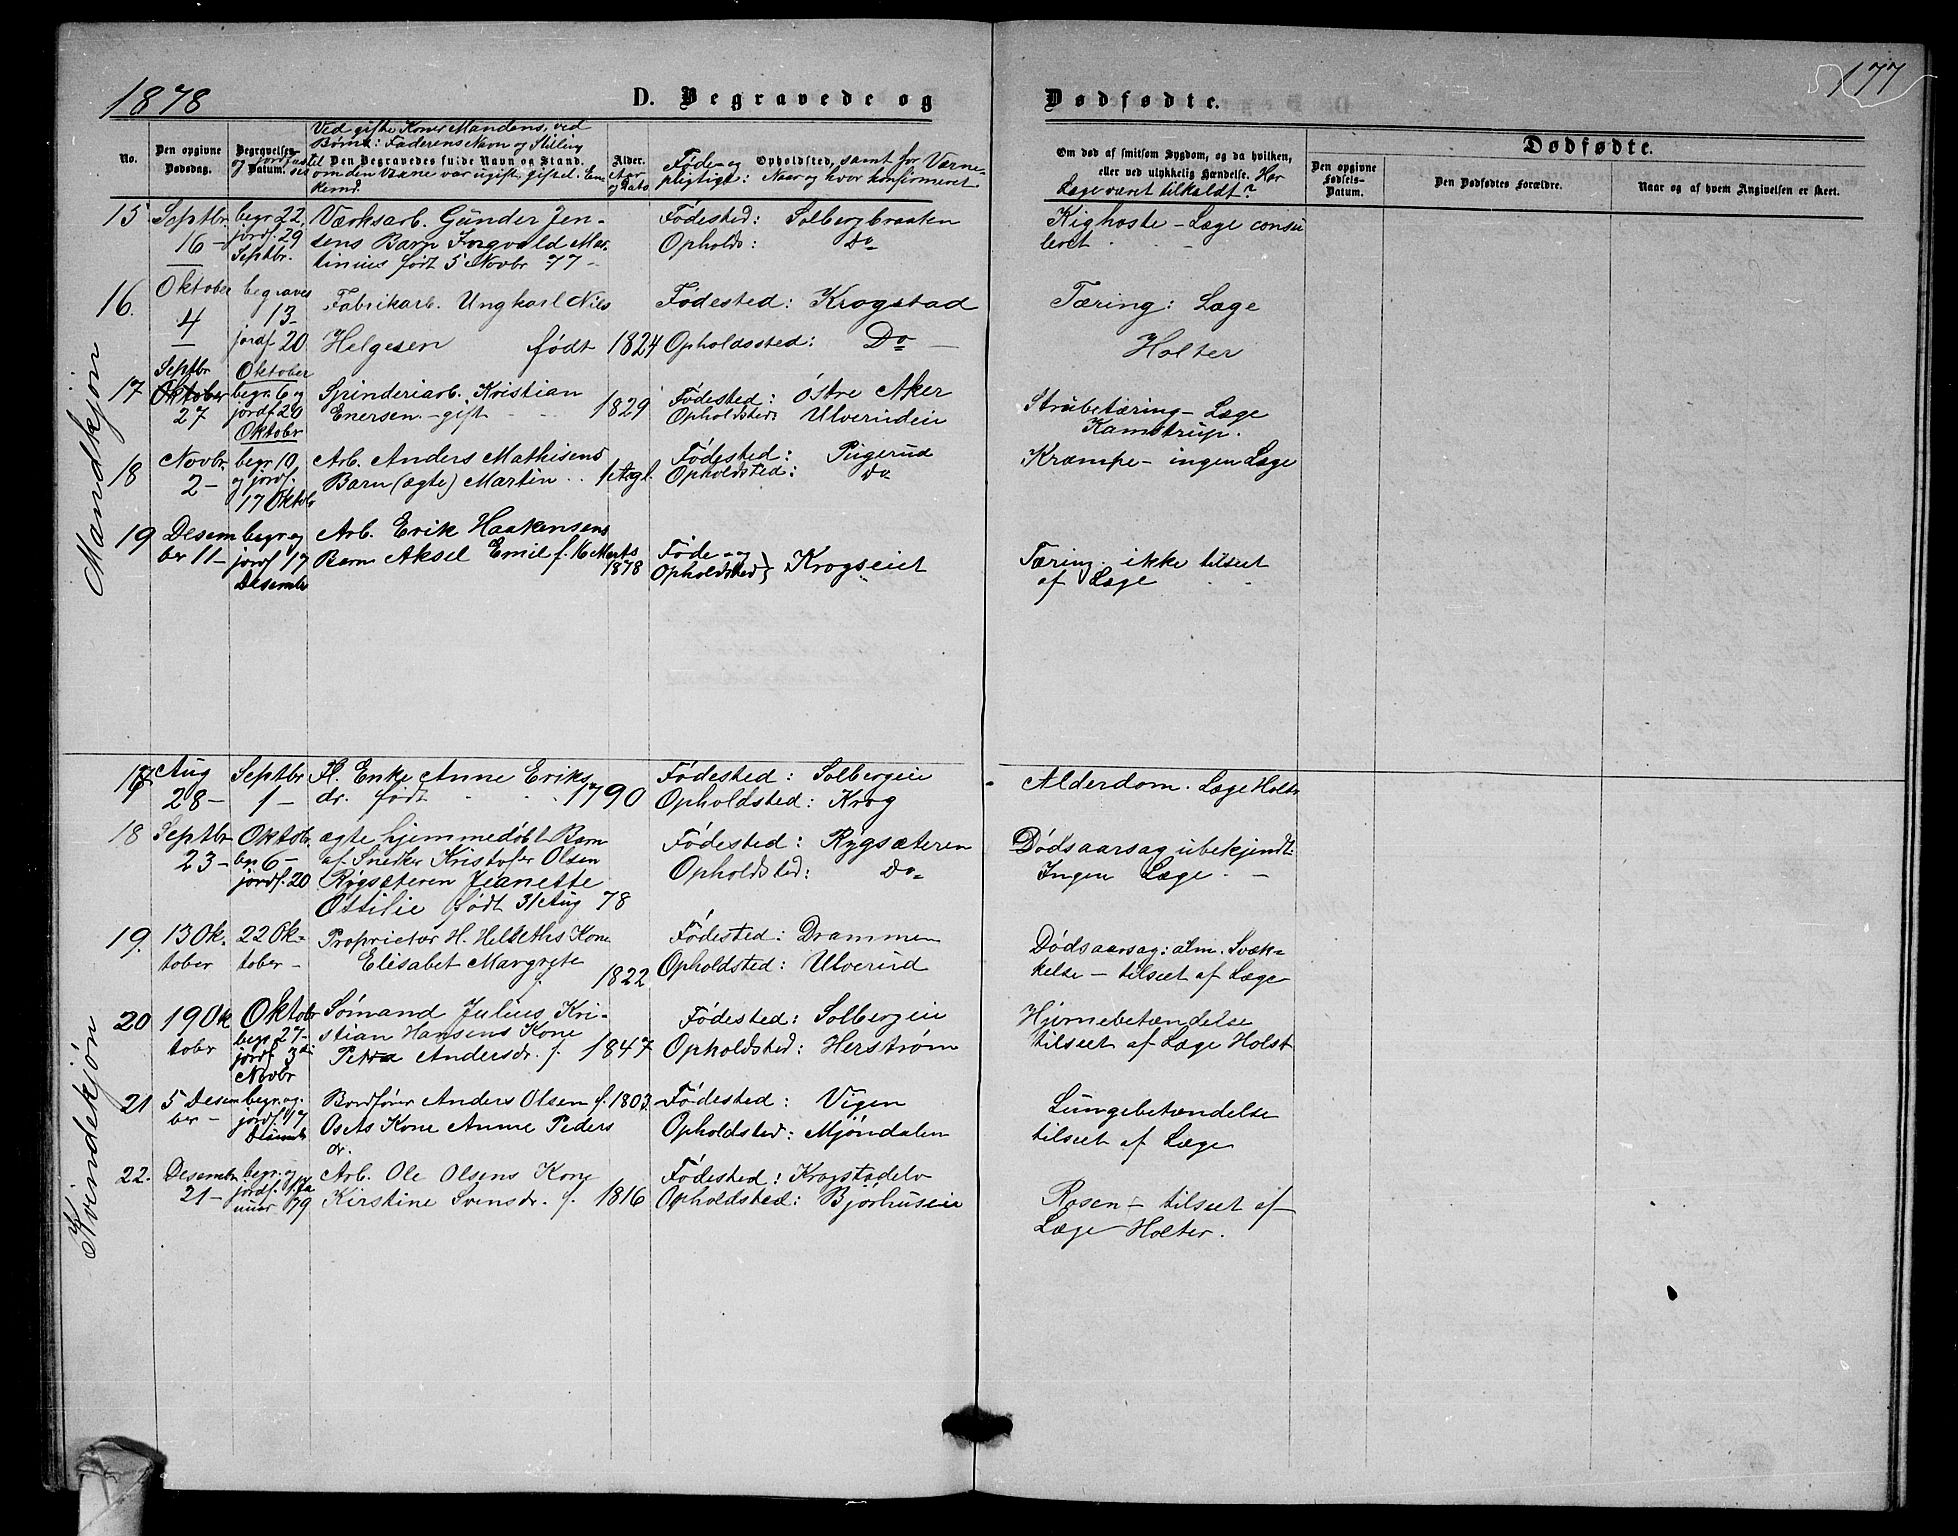 1878
D. Begravede og
Dødfødte.
177
No.
Den opgivne Dødsdag.
Begravelses og jordfæstelses Datum.
Ved gifte Koner Mandens, ved
Børn: Faderens Navn og Stilling
Den Begravedes fulde Navn og Stand.
om den Værne var ugift, gift el. Enkemd.
Alder.
Aar og Dato
Føde- og Opholdsted, samt for Værne-
pligtige: Naar og hvor konfirmeret
Om død af smitsom Sygdom, og da hvilken,
eller ved ulykkelig Hændelse. Har
Læge været tilkaldt?
Dødfødte.
Den opgivne Fødsels-Datum.
Den Dødfødtes Forældre.
Naar og af hvem Angivelsen er skeet.
Mandkjøn
15 Septbr. 16 – begr. 22 jordf. 29 Septbr.
Værksarb. Gunder Jen-
sens Barn Ingvald Mar-
tinius født 5 Novbr 77 –
Fødested: Solbergbraaten
Opholds: Do
Kighoste – Læge consu
leret
16. Oktober 4 begraves 13 – jordf 20
Fabrikarb. Ungkarl Nils
Helgesen født 1824
Fødested: Krogstad
Opholdssted: Do –
Tæring: Læge
Holter
17 Septbr Oktober 27 Oktober begr. 6 og jordf 20 Oktobr
Spinderiarb. Kristian
Enersen – gift 1829
Fødested: Østre Aker
Opholdsted: Ulverudeie
Strubetæring – Læge
Kamstrup.
18 Novbr. 2 – begr 10 og jordf. 17 Oktobr
Arb. Anders Mathisens
Barn (ægte) Martin 1 gl.
Fødested: Pugerud
Opholdsted: Do
Krampe – ingen Læge
19 Desem ber 11 – begr og jordf 17 Desember
Arb. Erik Haakensens
Barn Aksel Emil f. 16 Marts 1878
Føde - og
Opholdsted } Krogseiet
Tæring. ikke tilseet
af Læge
Kvindekjøn
17 Aug 28 – Septbr 1 –
Fl. Enke Anne Eriks
dr. født 1790
Fødested: Solbergeie
Opholdsted: Krog
Alderdom. Læge Holter
18 Septbr. 23 – Oktobr. 6 – jordf. 20
ægte hjemmedøbt Barn
af Sneker Kristofer Olsen
Rygsæteren Jeanette
Ottilie født 31 Aug 78
Fødested: Rygsæteren
Opholdsted: Do
Dødsaarsag ubekjendt.
Ingen Læge. –
19. 13 Ok. tober 22 Ok- tober –
Proprietær H. Helseths Kone
Elisabet Margrete 1822
Fødested: Drammen
Opholdsted: Ulverud
Dødsaarsag: alm. Svæk-
kelse – tilseet af Læge
20 19 Ok tober Oktobr begr 27 – jordf 3die Novbr
Sømand Julius Kri-
stian Hansens Kone
Petra Andersdr. f. 1847
Fødested: Solbergeie
Opholdsted: Herstrøm
Hjernebetændelse
tilseet af Læge Holst
21 5 Desem ber – begr. og. jordf 17 Desembr
Bordfører Anders Olsen f. 1803.
Osets Kone Anne Peders
dr.
Fødested: Vigen
Opholdsted: Mjøndalen
Lungebetændelse
tilseet af Læge
22. Desembr. 21 – begr. og jordf. 1/1 Ja nuar 79
Arb. Ole Olsens Kone
Kirstine Svensdr. f. 1816
Fødested: Krogstadelv
Opholdsted: Bjørhuseie
Rosen – tilseet af
Læge Holter.